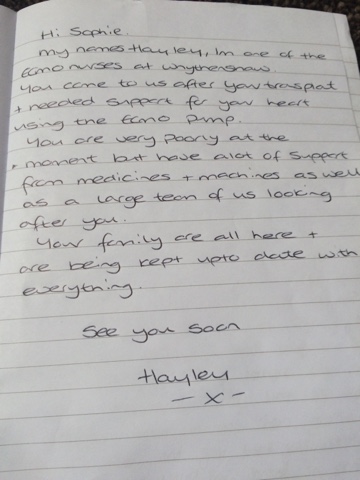 Hi Sophie.
my names Hayley, Im one of the
Ecmo nurses at whythenshawe.
You came to us after your trasplat
+ needed support for your heart
using the Ecmo pump.
You are very poorly at the
moment but have alot of support
from medicines + machines as well
as a large team of us looking
after you.
Your family are all here +
are being kept upto date with
everything.
See you soon
Hayley
- x -